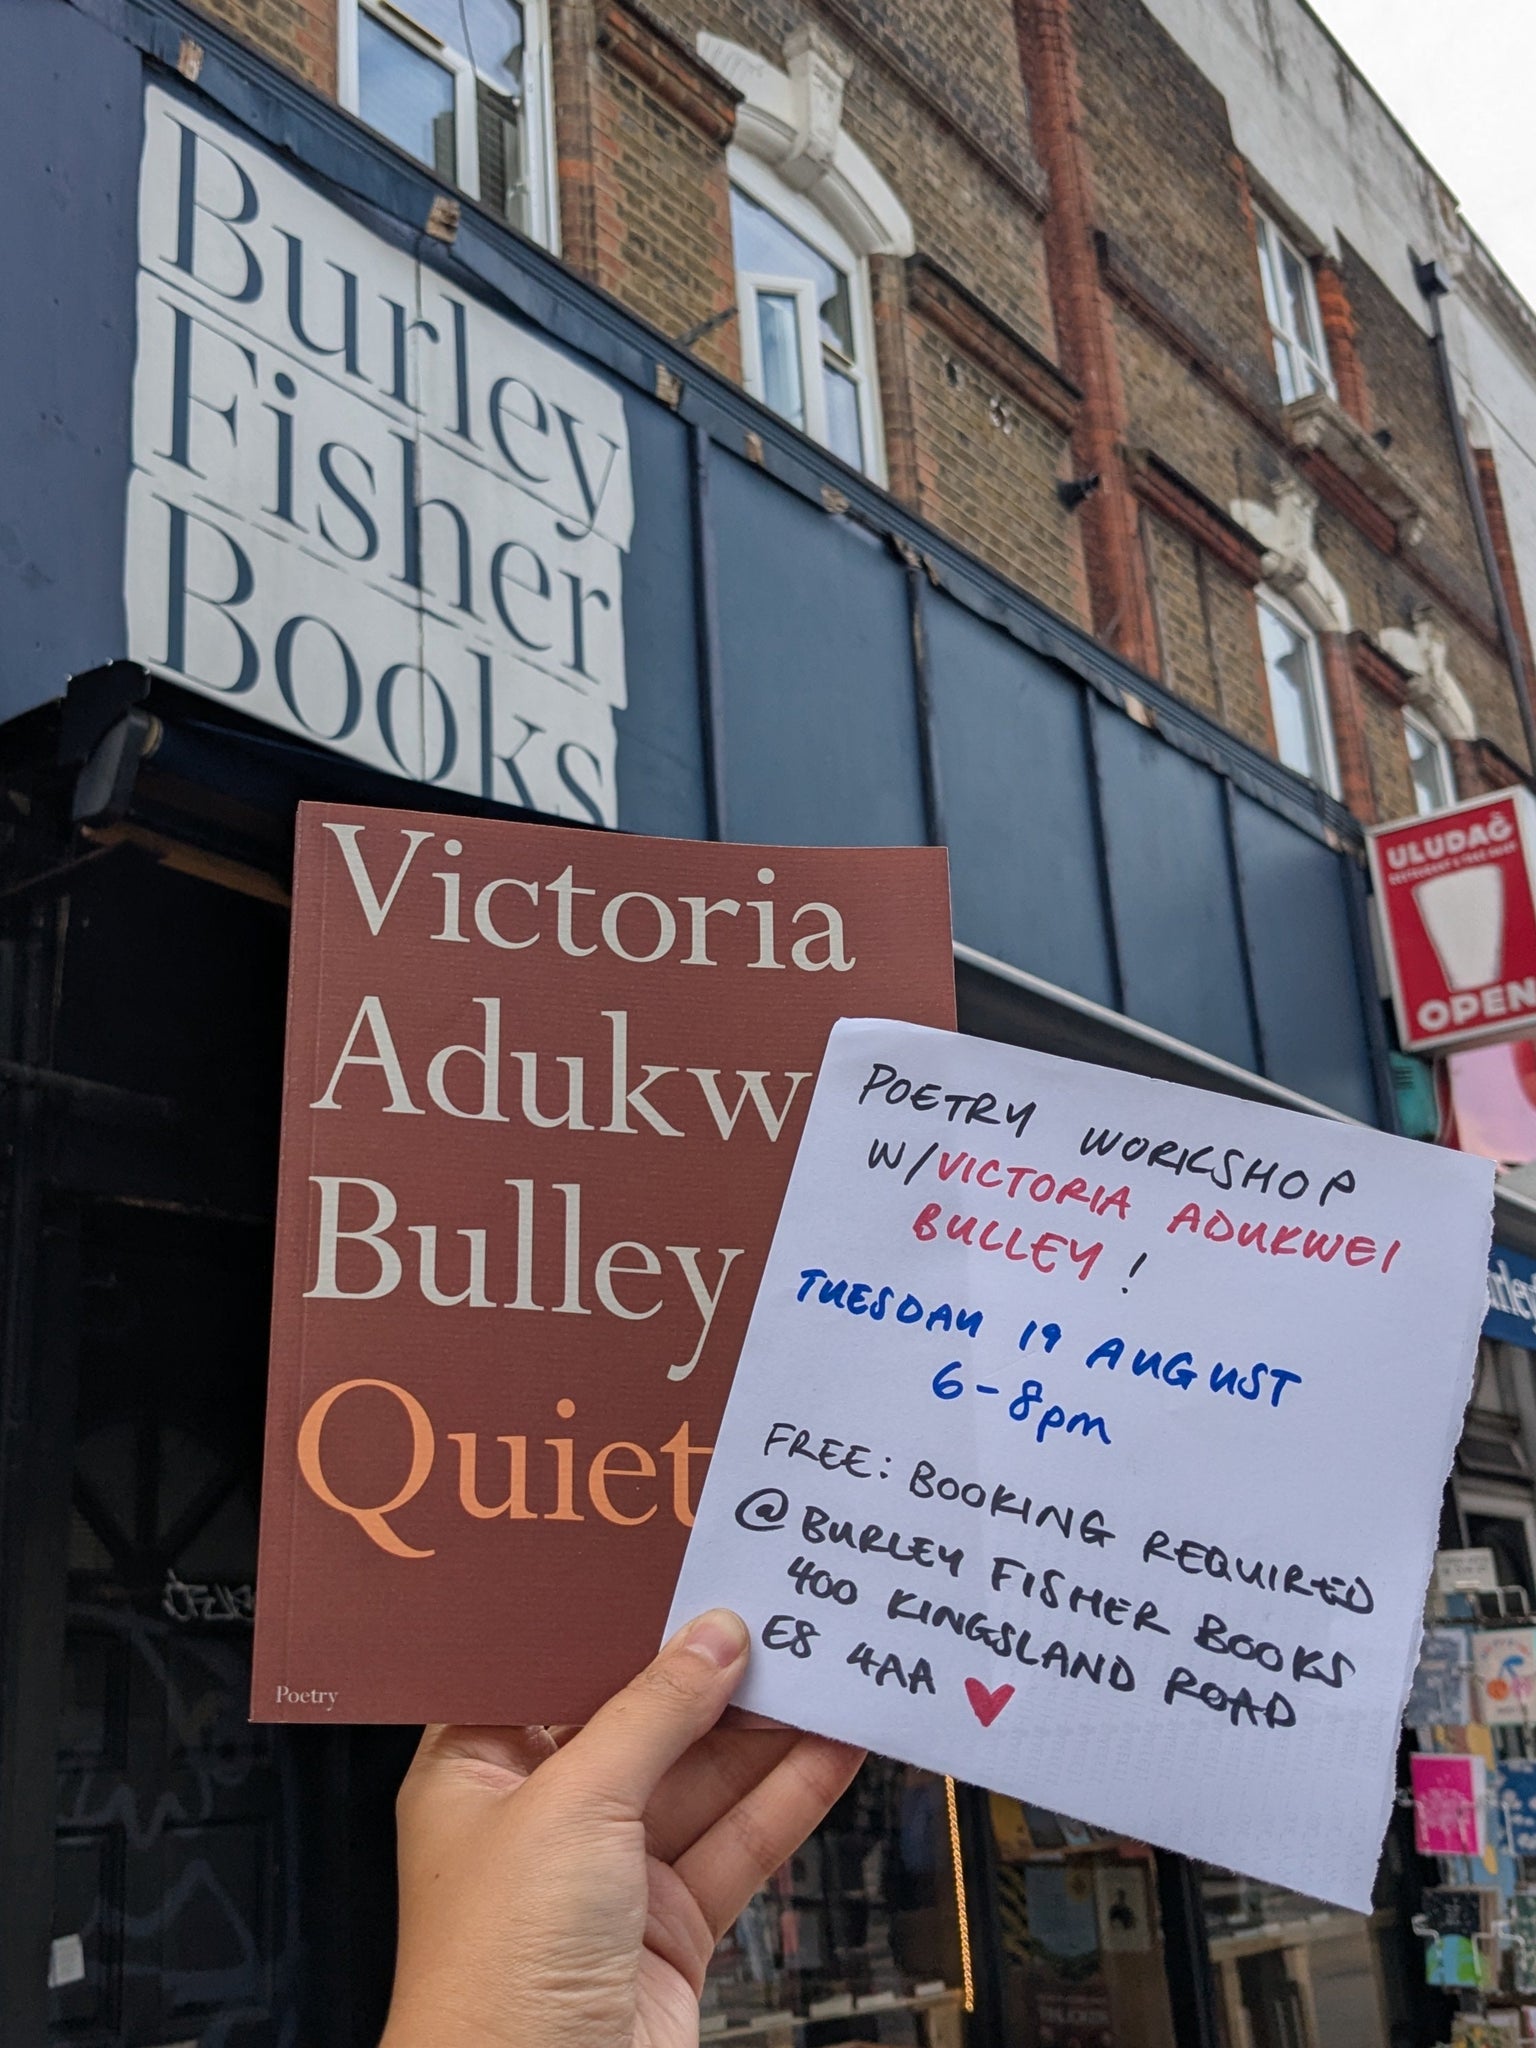 Burley
Fisher
Books
Victoria
Adukw
Bulley
Quiet
Poetry
POETRY WORKSHOP
W/VICTORIA ADUKWEI
BULLEY!
TUESDAY 19 AUGUST
6-8pm
FREE: BOOKING REQUIRED
@ BURLEY FISHER BOOKS
400 KINGSLAND ROAD
E8 4AA
ULUDAĞ
OPEN